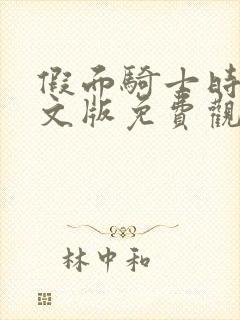 假面騎士時
文版免費觀
林中和